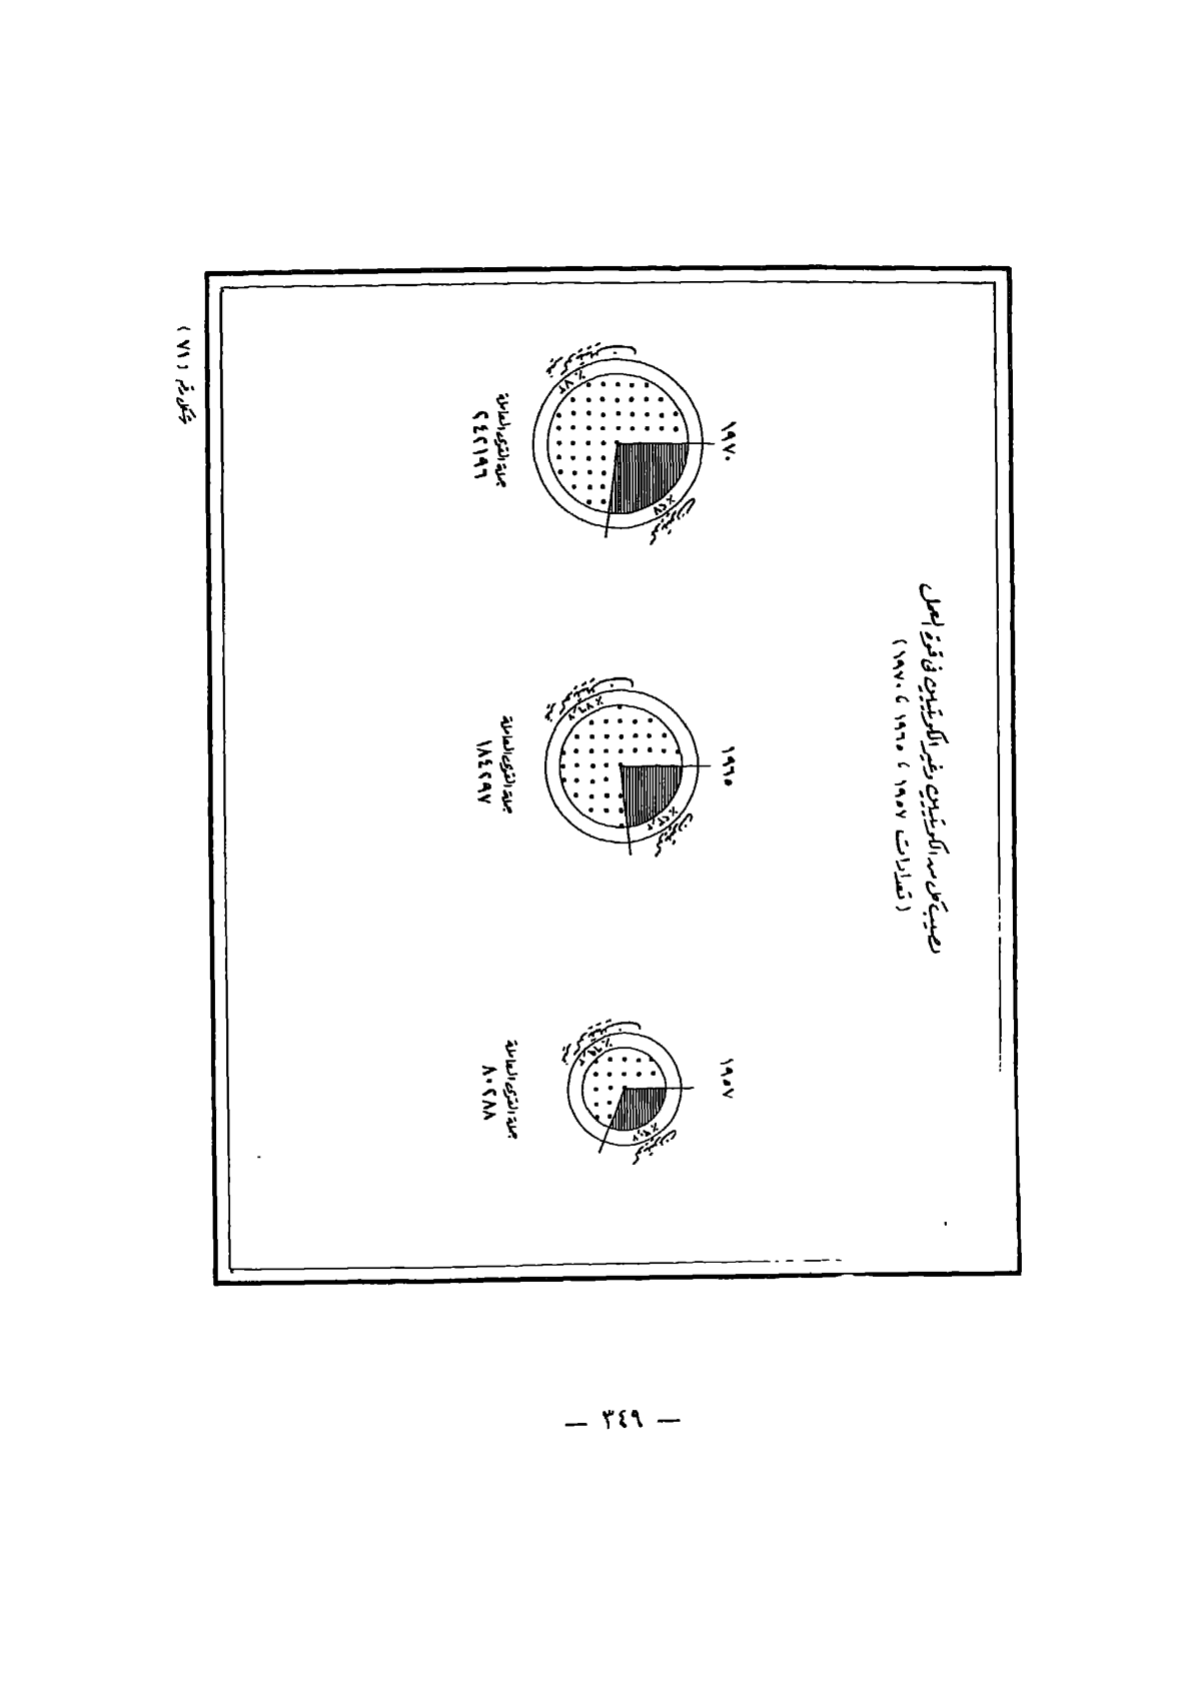 نصيب كل من الكويتيين وغير الكويتيين فى قوة العمل
( تعدادات ١٩٥٧ ، ١٩٦٥ ، ١٩٧٠ )
١٩٥٧
كويتيون
غير كويتيين
جملة القوى العاملة
٨٠٢٨٨
١٩٦٥
كويتيون
غير كويتيين
جملة القوى العاملة
١٨٤٢٩٧
١٩٧٠
كويتيون
٪ ٢٧
غير كويتيين
٪ ٧٣
جملة القوى العاملة
٢٤٢١٩٦
شكل رقم ( ٧١ )
— ٣٤٩ —